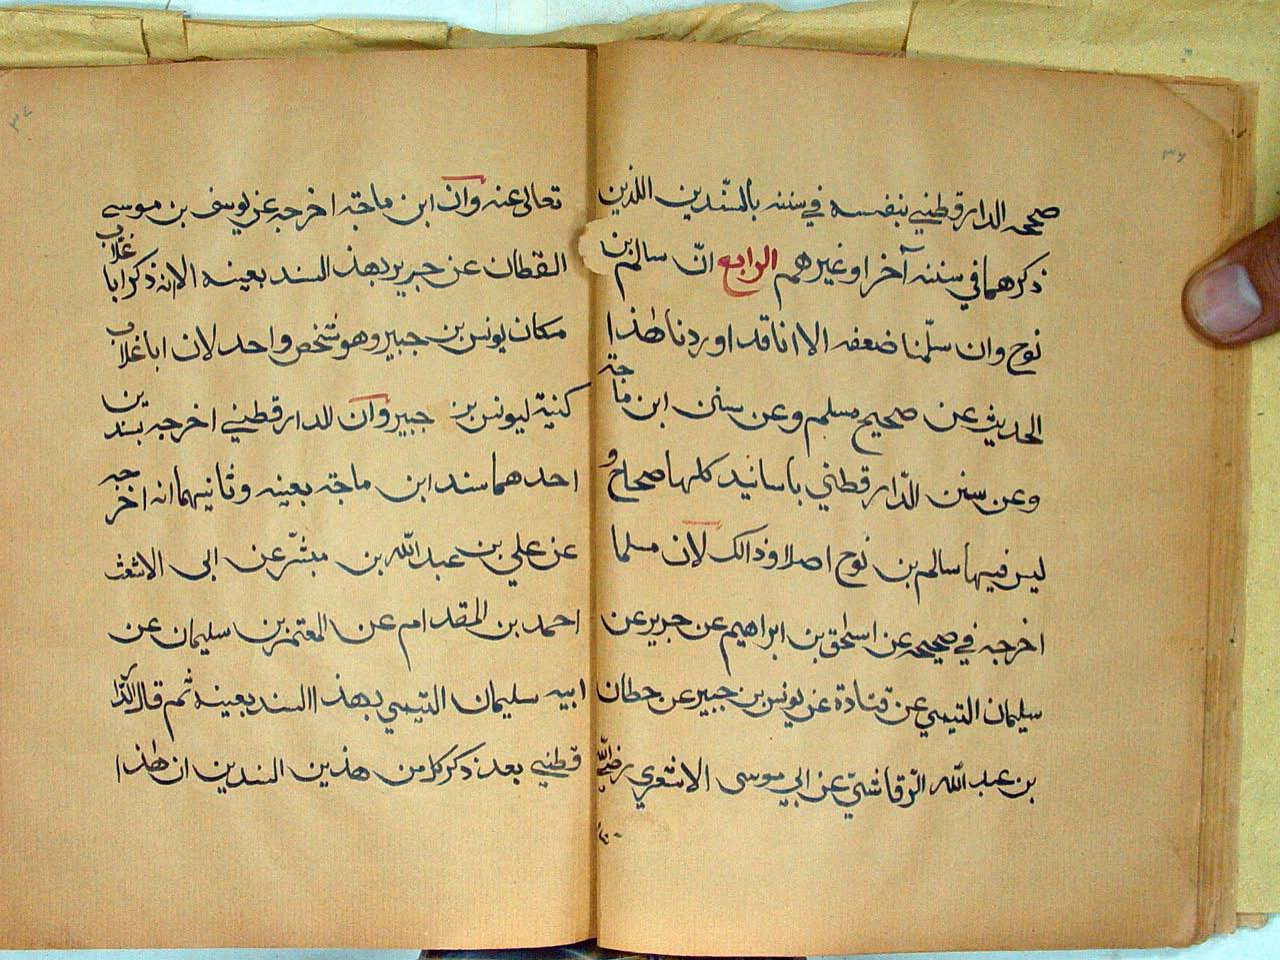 ٣٦
صححه الدارقطني بنفسه في سننه بالسندين اللذين
ذكرهما في سننه آخر او غيرهم الرابع انّ سالم بن
نوح وان سلّمنا ضعفه الا انا قد اوردنا هذا
الحديث عن صحيح مسلم وعن سنن ابن ماجة
وعن سنن الدّارقطني باسانيد كلها صحاح و
ليس فيها سالم بن نوح اصلا وذالك لان مسلما
اخرجه في صحيحه عن اسحق بن ابراهيم عن جرير عن
سليمان التيمي عن قتادة عن يونس بن جبير عن حطان
بن عبد الله الرّقاشيّ عن ابي موسى الاشعري رضي الله
٣٧
تعالى عنه وان ابن ماجة اخرجه عن يوسف بن موسى
القطان عن جرير بهذ السند بعينه الا انه ذكر ابا غلاب
مكان يونس بن جبير وهو شخص واحد لان ابا غلاب
كنية ليونس بن جبير وان للدارقطني اخرجه بسندين
احدهما سند ابن ماجة بعينه وثانيهما انه اخرجه
عن علي بن عبد الله بن مبشّر عن ابى الاشعث
احمد بن المقدام عن المعتمر بن سليمان عن
ابيه سليمان التيمي بهذ السند بعينه ثم قال الدّار
قطني بعد ذكر كل من هذين السندين ان هذا